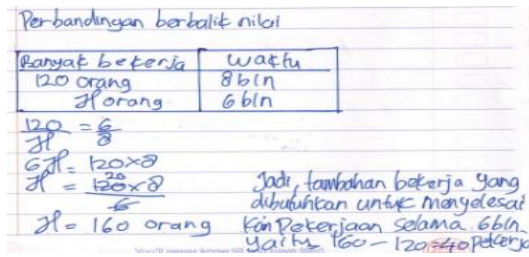 Perbandingan berbalik nilai
Banyak bekerja waktu
120 orang 8 bln
x orang 6 bln
120/x = 6/8
6x = 120 x 8
x = 120 x 8 / 6
20
x = 160 orang
Jadi, tambahan bekerja yang
dibutuhkan untuk menyelesai
kan Pekerjaan selama 6 bln
yaitu 160 - 120 = 40 pekerja